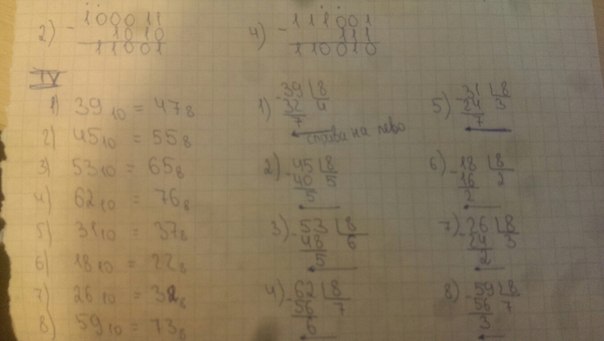 2) - 100011
1010
11001
4) - 111001
111
110010
IV
1) 39₁₀ = 47₈
2) 45₁₀ = 55₈
3) 53₁₀ = 65₈
4) 62₁₀ = 76₈
5) 31₁₀ = 37₈
6) 18₁₀ = 22₈
7) 26₁₀ = 32₈
8) 59₁₀ = 73₈
1) - 39 | 8
32 4
7
справа на лево
2) - 45 | 8
40 5
5
3) - 53 | 8
48 6
5
4) - 62 | 8
56 7
6
5) - 31 | 8
24 3
7
6) - 18 | 8
16 2
2
7) - 26 | 8
24 3
2
8) - 59 | 8
56 7
3